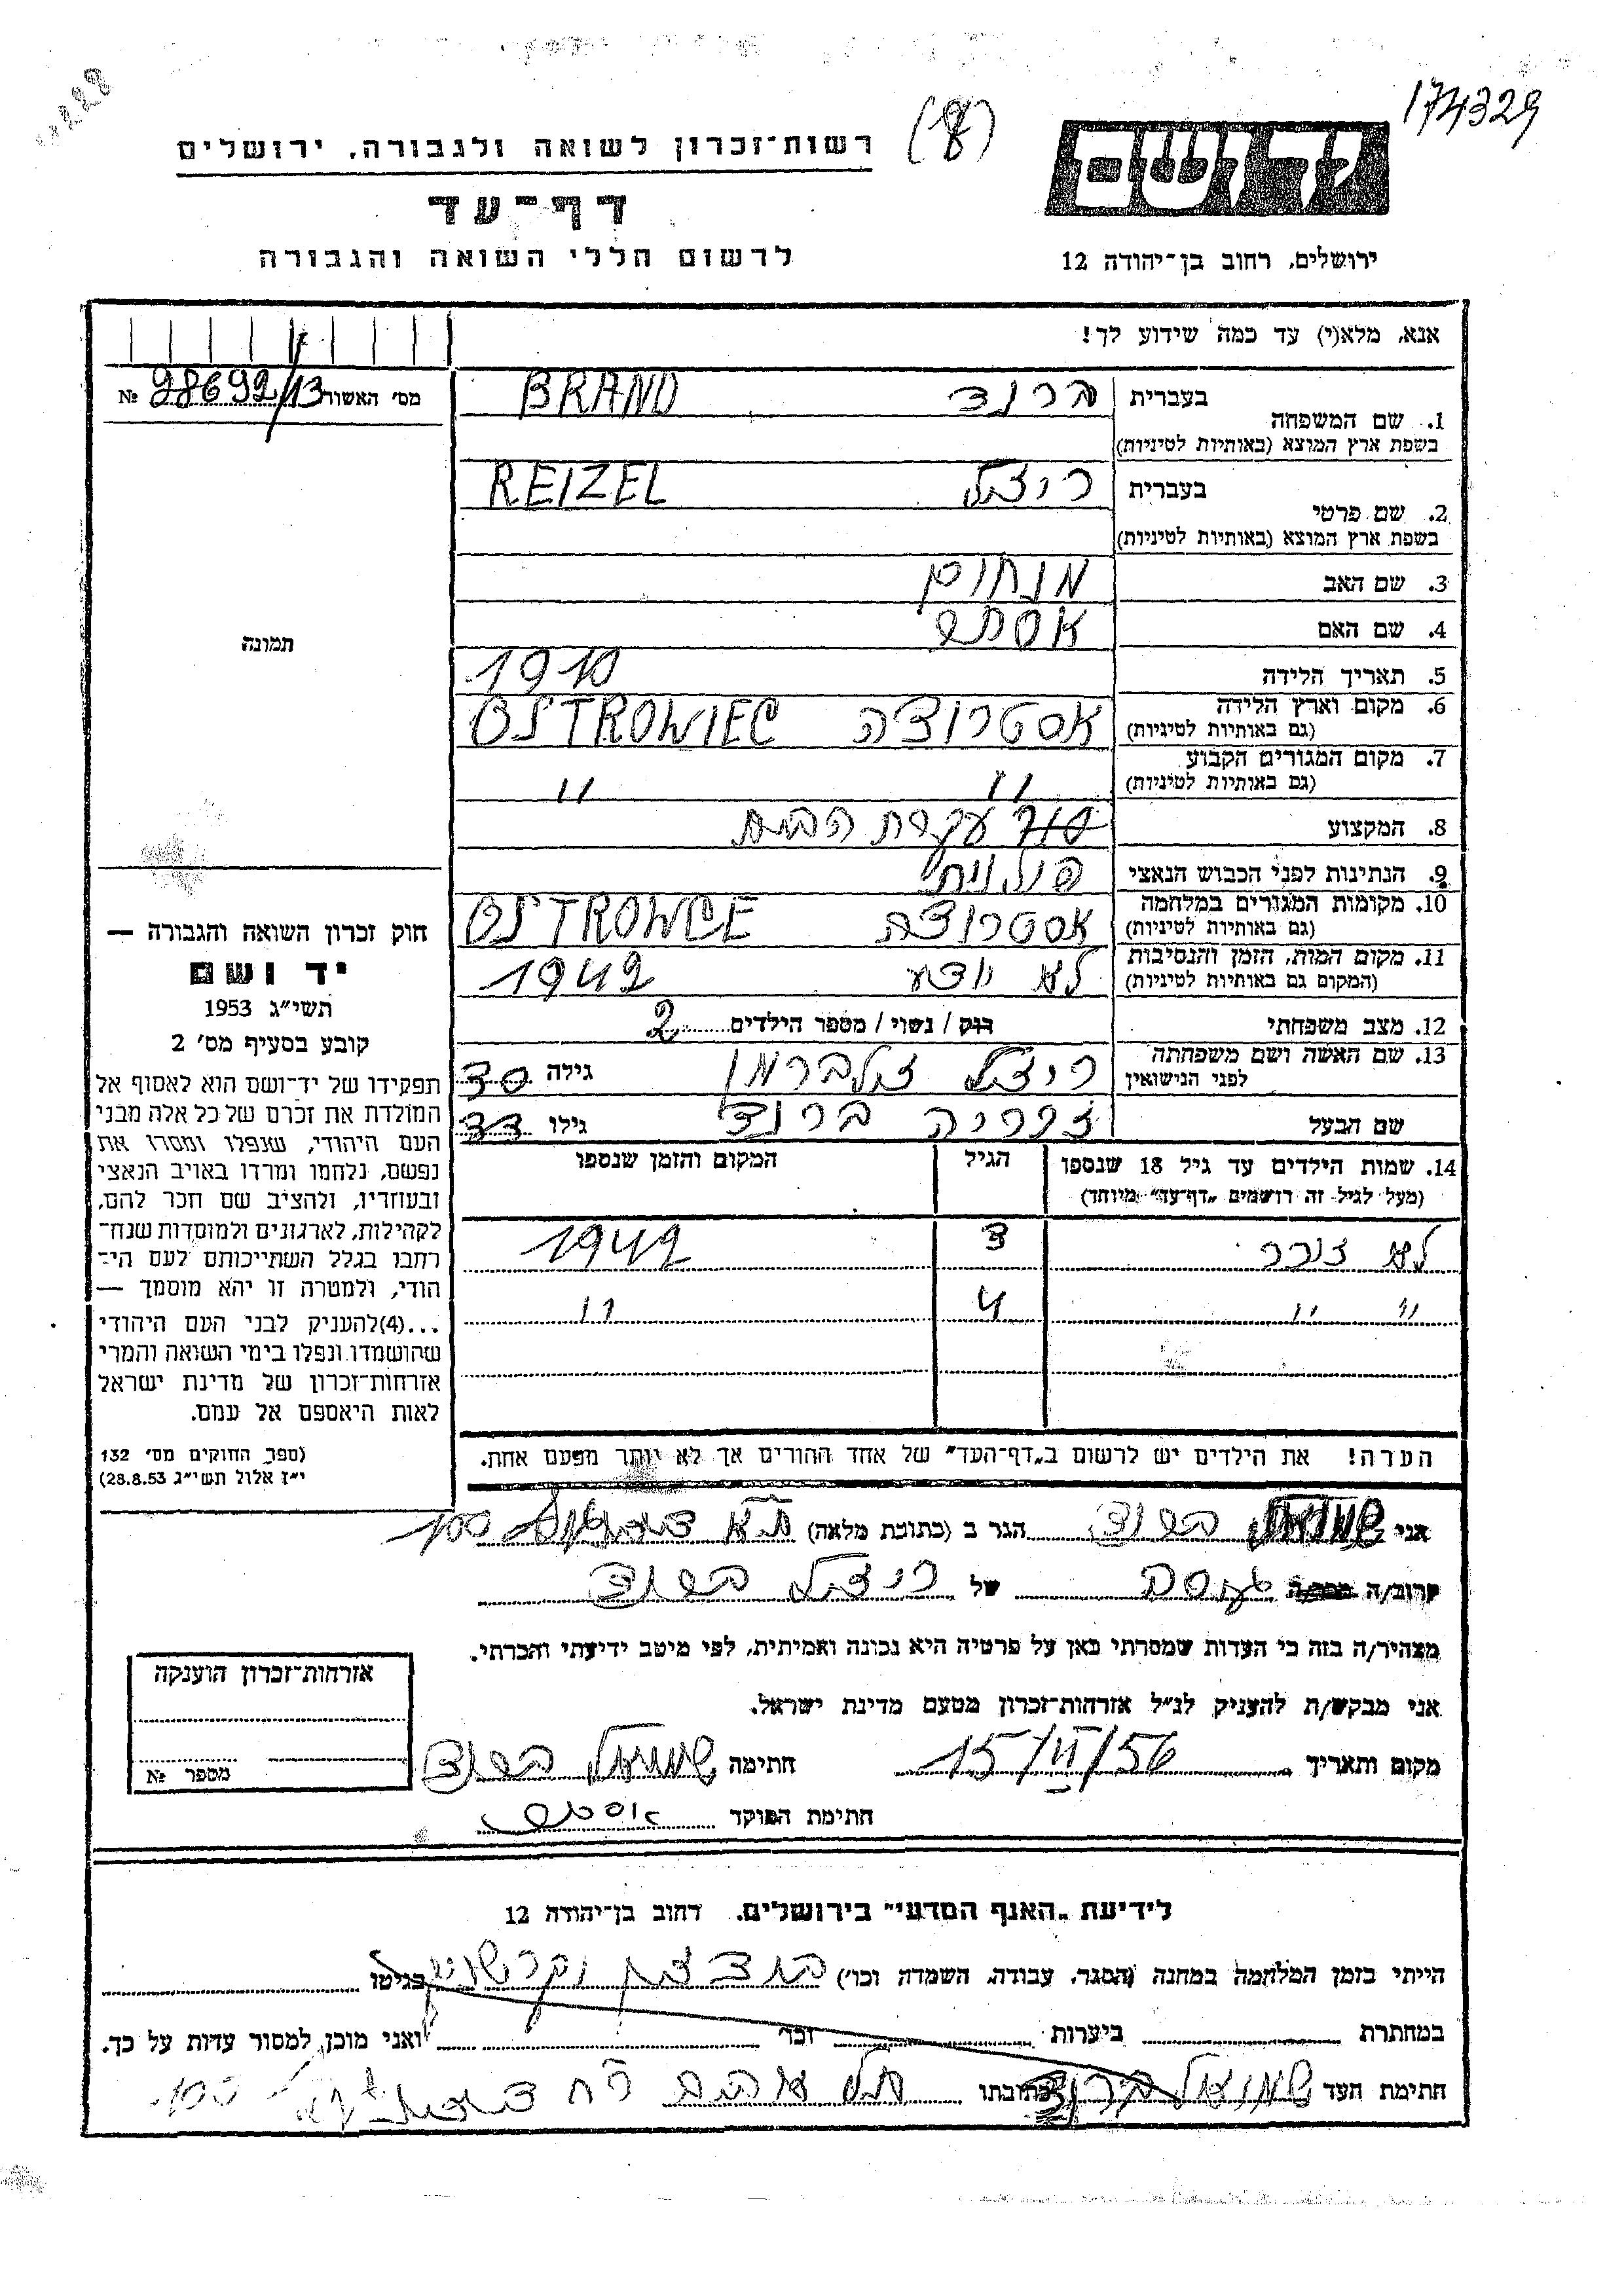 174329
(8)
יד ושם
רשות־זכרון לשואה ולגבורה, ירושלים
דף־עד
לרשום חללי השואה והגבורה
ירושלים, רחוב בן־יהודה 12
אנא, מלא(י) עד כמה שידוע לך!
מס' האשור 28692/13 №
בעברית ברנד BRAND
1. שם המשפחה
בשפת ארץ המוצא (באותיות לטיניות)
בעברית ריצל REIZEL
2. שם פרטי
בשפת ארץ המוצא (באותיות לטיניות)
3. שם האב מנחום
4. שם האם אסתר
5. תאריך הלידה 1910
6. מקום וארץ הלידה אסטרובצה OSTROWIEC
(גם באותיות לטיניות)
7. מקום המגורים הקבוע
(גם באותיות לטיניות) " "
8. המקצוע עקרת הבית
9. הנתינות לפני הכבוש הנאצי פולנית
10. מקומות המגורים במלחמה אסטרובצה OSTROWCE
(גם באותיות לטיניות)
11. מקום המות, הזמן והנסיבות לא ידוע 1942
(המקום גם באותיות לטיניות)
12. מצב משפחתי רוק / נשוי / מספר הילדים 2
13. שם האשה ושם משפחתה ריצל זילברמן גילה 30
לפני הנישואין
שם הבעל ברנד גילו 33
14. שמות הילדים עד גיל 18 שנספו הגיל המקום והזמן שנספו
(מעל לגיל זה רושמים „דף־עד" מיוחד)
לא זוכר 3 1942
" " 4 "
הערה! את הילדים יש לרשום ב„דף־העד" של אחד ההורים אך לא יותר מפעם אחת.
תמונה
חוק זכרון השואה והגבורה —
יד ושם
תשי"ג 1953
קובע בסעיף מס' 2
תפקידו של יד־ושם הוא לאסוף אל
המולדת את זכרם של כל אלה מבני
העם היהודי, שנפלו ומסרו את
נפשם, נלחמו ומרדו באויב הנאצי
ובעוזריו, ולהציב שם וזכר להם,
לקהילות, לארגונים ולמוסדות שנח־
רבו בגלל השתייכותם לעם הי־
הודי, ולמטרה זו יהא מוסמך —
...(4) להעניק לבני העם היהודי
שהושמדו ונפלו בימי השואה והמרי
אזרחות־זכרון של מדינת ישראל
לאות היאספם אל עמם.
(ספר החוקים מס' 132
י"ז אלול תשי"ג 28.8.53)
אני שמואל ברנד הגר ב (כתובת מלאה) ת"א 100
קרוב/ה של ריצל ברנד
מצהיר/ה בזה כי העדות שמסרתי כאן על פרטיה היא נכונה ואמיתית, לפי מיטב ידיעתי והכרתי.
אני מבקש/ת להעניק לנ"ל אזרחות־זכרון מטעם מדינת ישראל.
מקום ותאריך 15/VI/56 חתימה שמואל ברנד
חתימת הפוקד
אזרחות־זכרון הוענקה
מספר №
לידיעת „האגף המדעי" בירושלים, רחוב בן־יהודה 12
הייתי בזמן המלחמה במחנה (הסגר, עבודה, השמדה וכו') בגיטו
במחתרת ביערות וכו' ואני מוכן למסור עדות על כך.
חתימת העד שמואל ברנד כתובתו תל אביב רח 100